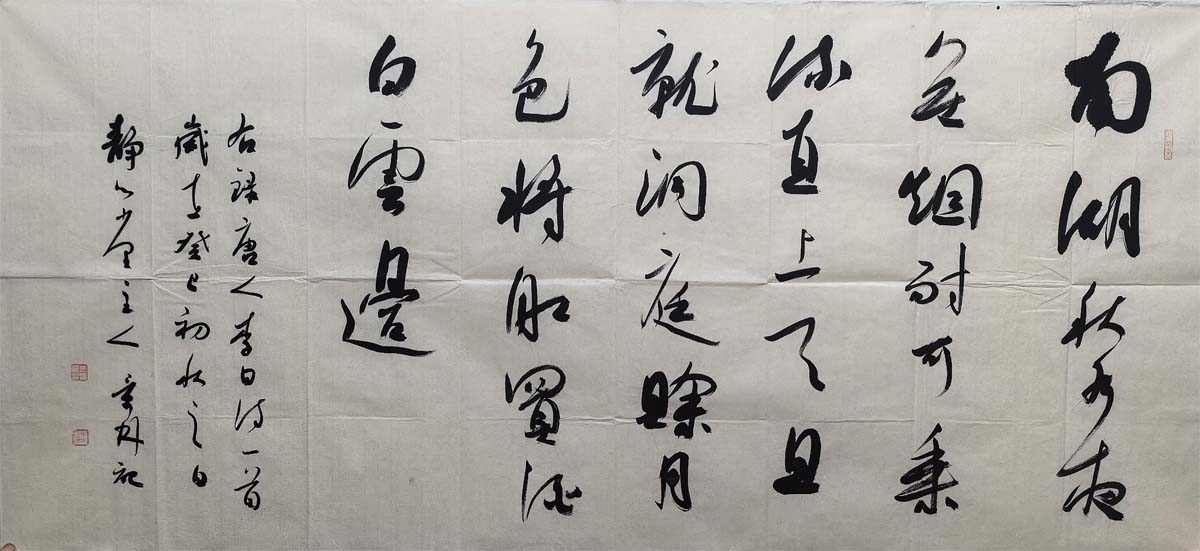 南湖秋水夜
無烟耐可乘
流直上天且
就洞庭賒月
色將船買酒
白雲邊
右録唐人李白詩一首
歲在癸巳初秋之日
靜心堂主人 記